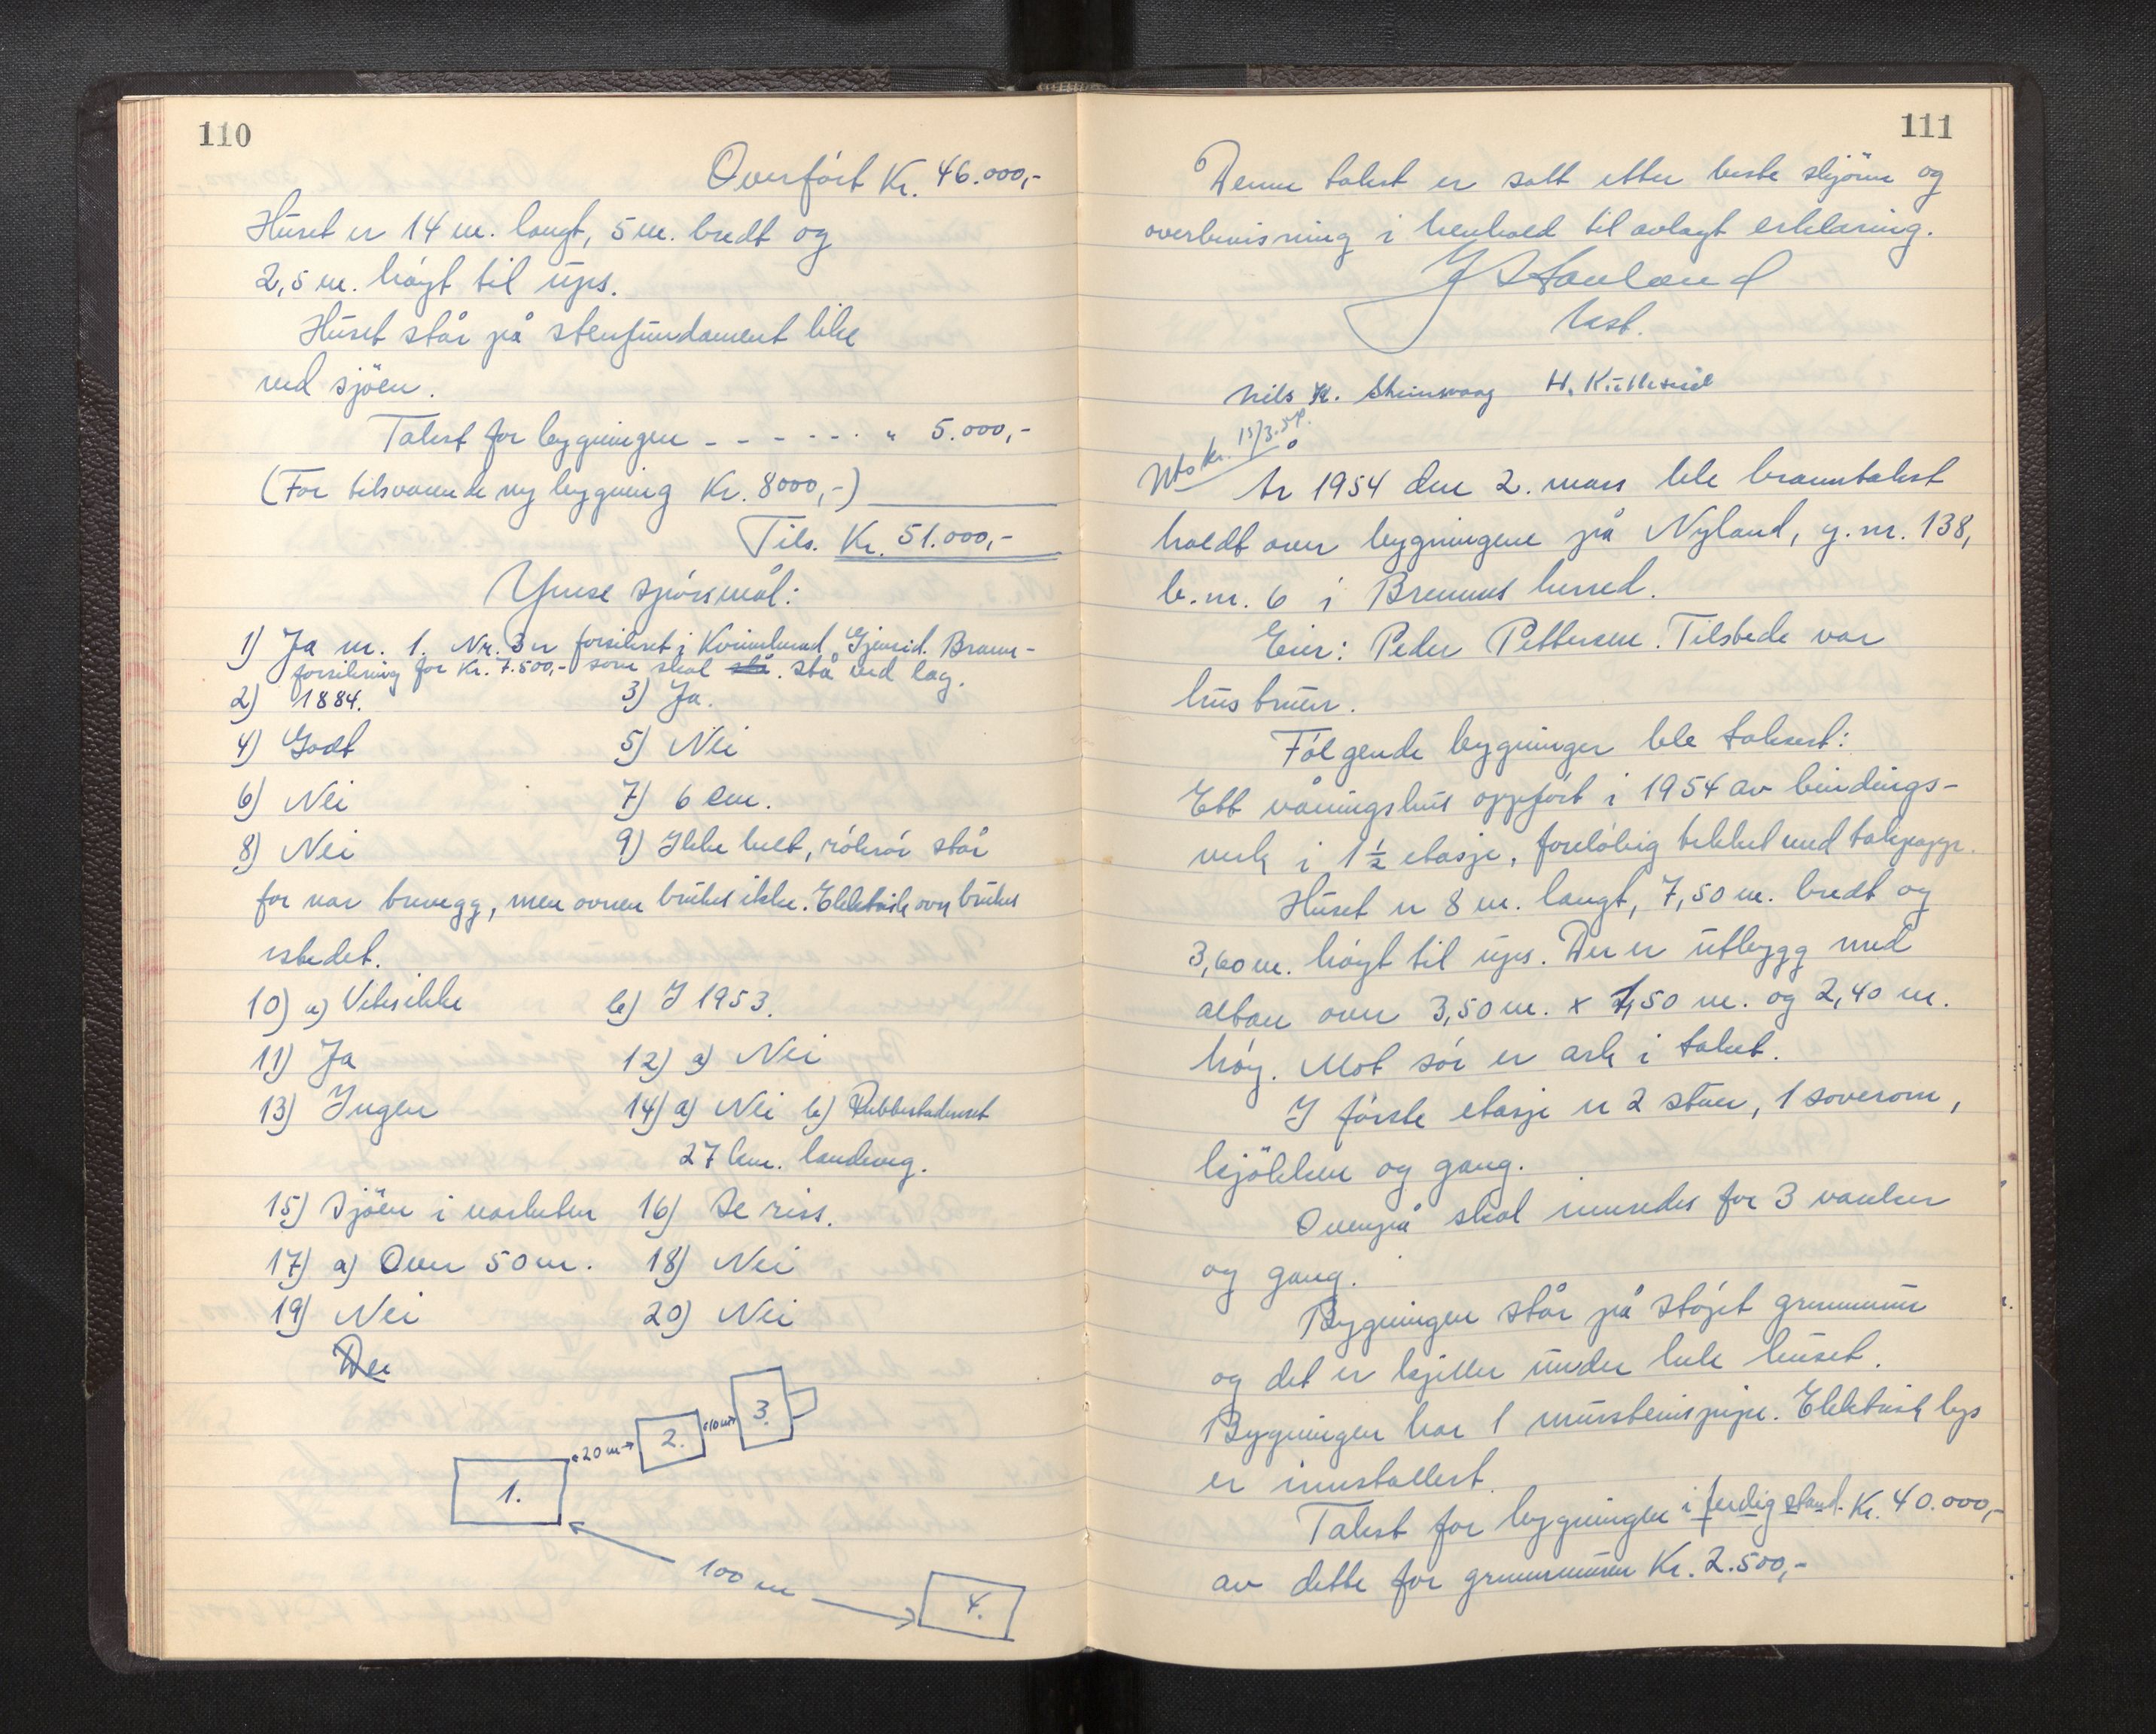 110
Overført Kr. 46.000,-
Huset er 14 m. langt, 5 m. bredt og
2,5 m. høyt til ups.
Huset står på stenfundament like
ved sjøen.
Takst for bygningen - - - - - - " 5.000,-
(For tilsvarende ny bygning Kr. 8000,-)
Tils. Kr. 51.000,-
Ymse spørsmål:
1) Ja nr. 1. Nr. 3 er forsikret i Kvinnherad Gjensid. Brann-
forsikring for Kr. 7.500,- som skal stå. stå ved lag.
2) 1884. 3) Ja.
4) Godt 5) Nei
6) Nei 7) 6 cm.
8) Nei 9) Ikke helt, rökrör står
for nær trevegg, men ovnen brukes ikke. Elektrisk ovn brukes
istedet.
10) a) Vites ikke b) I 1953.
11) Ja 12) a) Nei
13) Ingen 14) a) Nei b) Rubbestadneset
27 km. landeveg.
15) Sjöen i nærheten 16) Se riss.
17) a) Over 50 m. 18) Nei
19) Nei 20) Nei
Den
1. 20 m 2. 10 m 3.
100 m
4.
111
Denne takst er satt etter beste skjönn og
overbevisning i henhold til avlagt erklæring.
J Stanland
lest.
Nils K. Steinsvaag H.
Uts kr. 15/3.54.
År 1954 den 2. mars ble branntakst
holdt over bygningene på Nyland, g.nr. 138,
b.nr. 6 i Bremnes herred.
Eier: Peder Pettersen. Tilstede var
hustruen.
Følgende bygninger ble taksert:
Ett våningshus oppført i 1954 av bindings-
verk i 1½ etasje, foreløbig tekket med takpapp.
Huset er 8 m. langt, 7,50 m. bredt og
3,60 m. høyt til ups. Der er utbygg med
altan over 3,50 m. x 1,50 m. og 2,40 m.
høg. Mot sør er ark i taket.
I første etasje er 2 stuer, 1 soverom,
kjökken og gang.
Ovenpå skal innredes for 3 værelser
og gang.
Bygningen står på støpt grunnmur
og det er kjeller under hele huset.
Bygningen har 1 murstenspipe. Elektrisk lys
er innstallert.
Takst for bygningen i ferdig stand. Kr. 40.000,-
av dette for grunnmuren Kr. 2.500,-